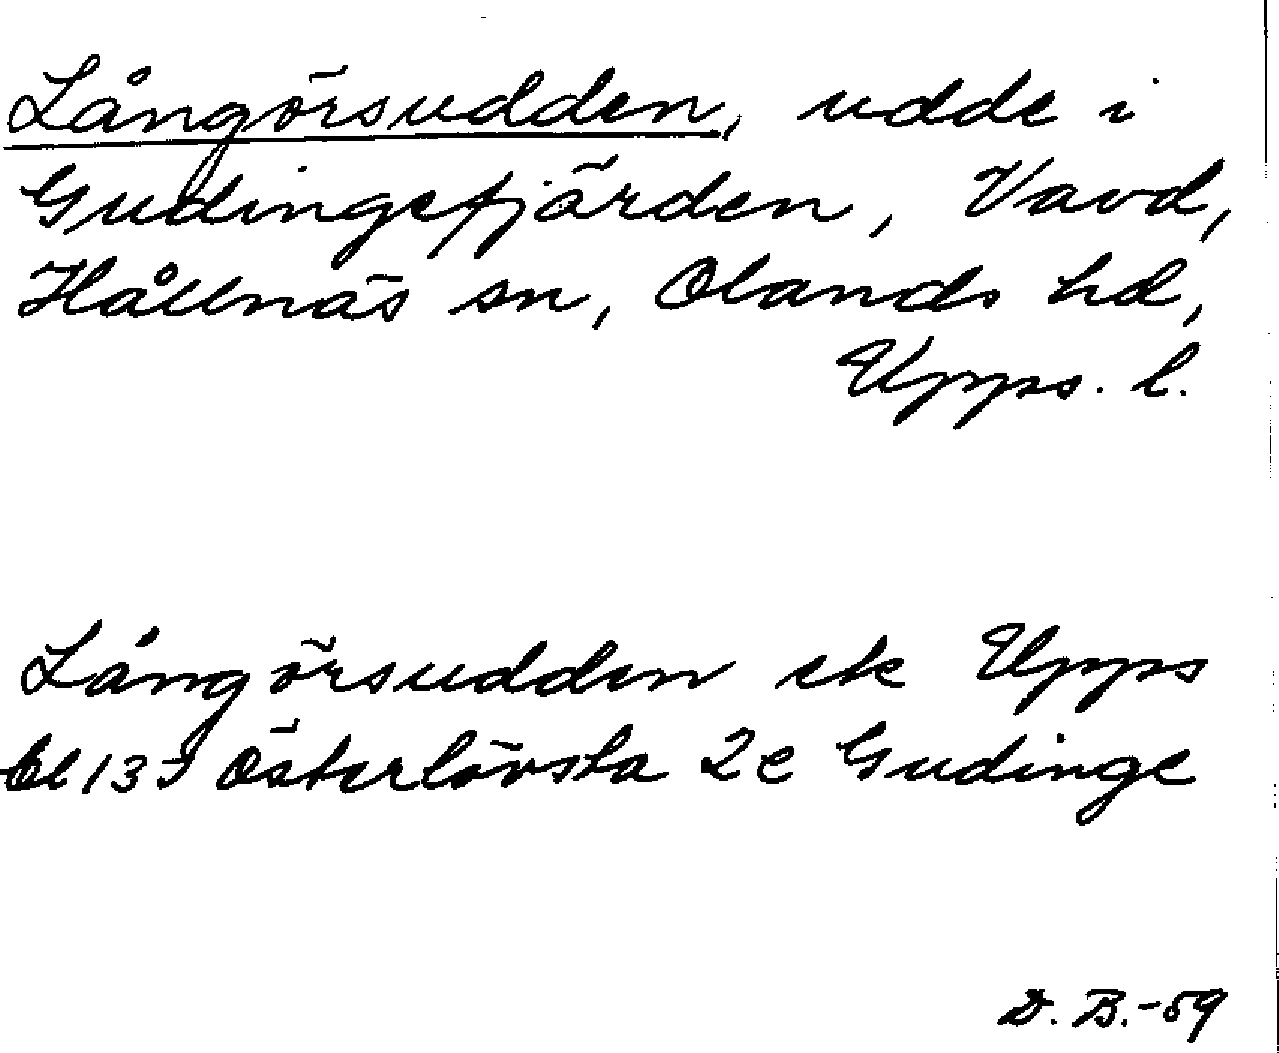 Långörsudden, udde i
Gudingefjärden, Vavd,
Hållnäs sn, Olands hd,
Upps. l.
Långörsudden ek Upps
Bl 133 Österlövsta 2e Gudinge
D. B.-59